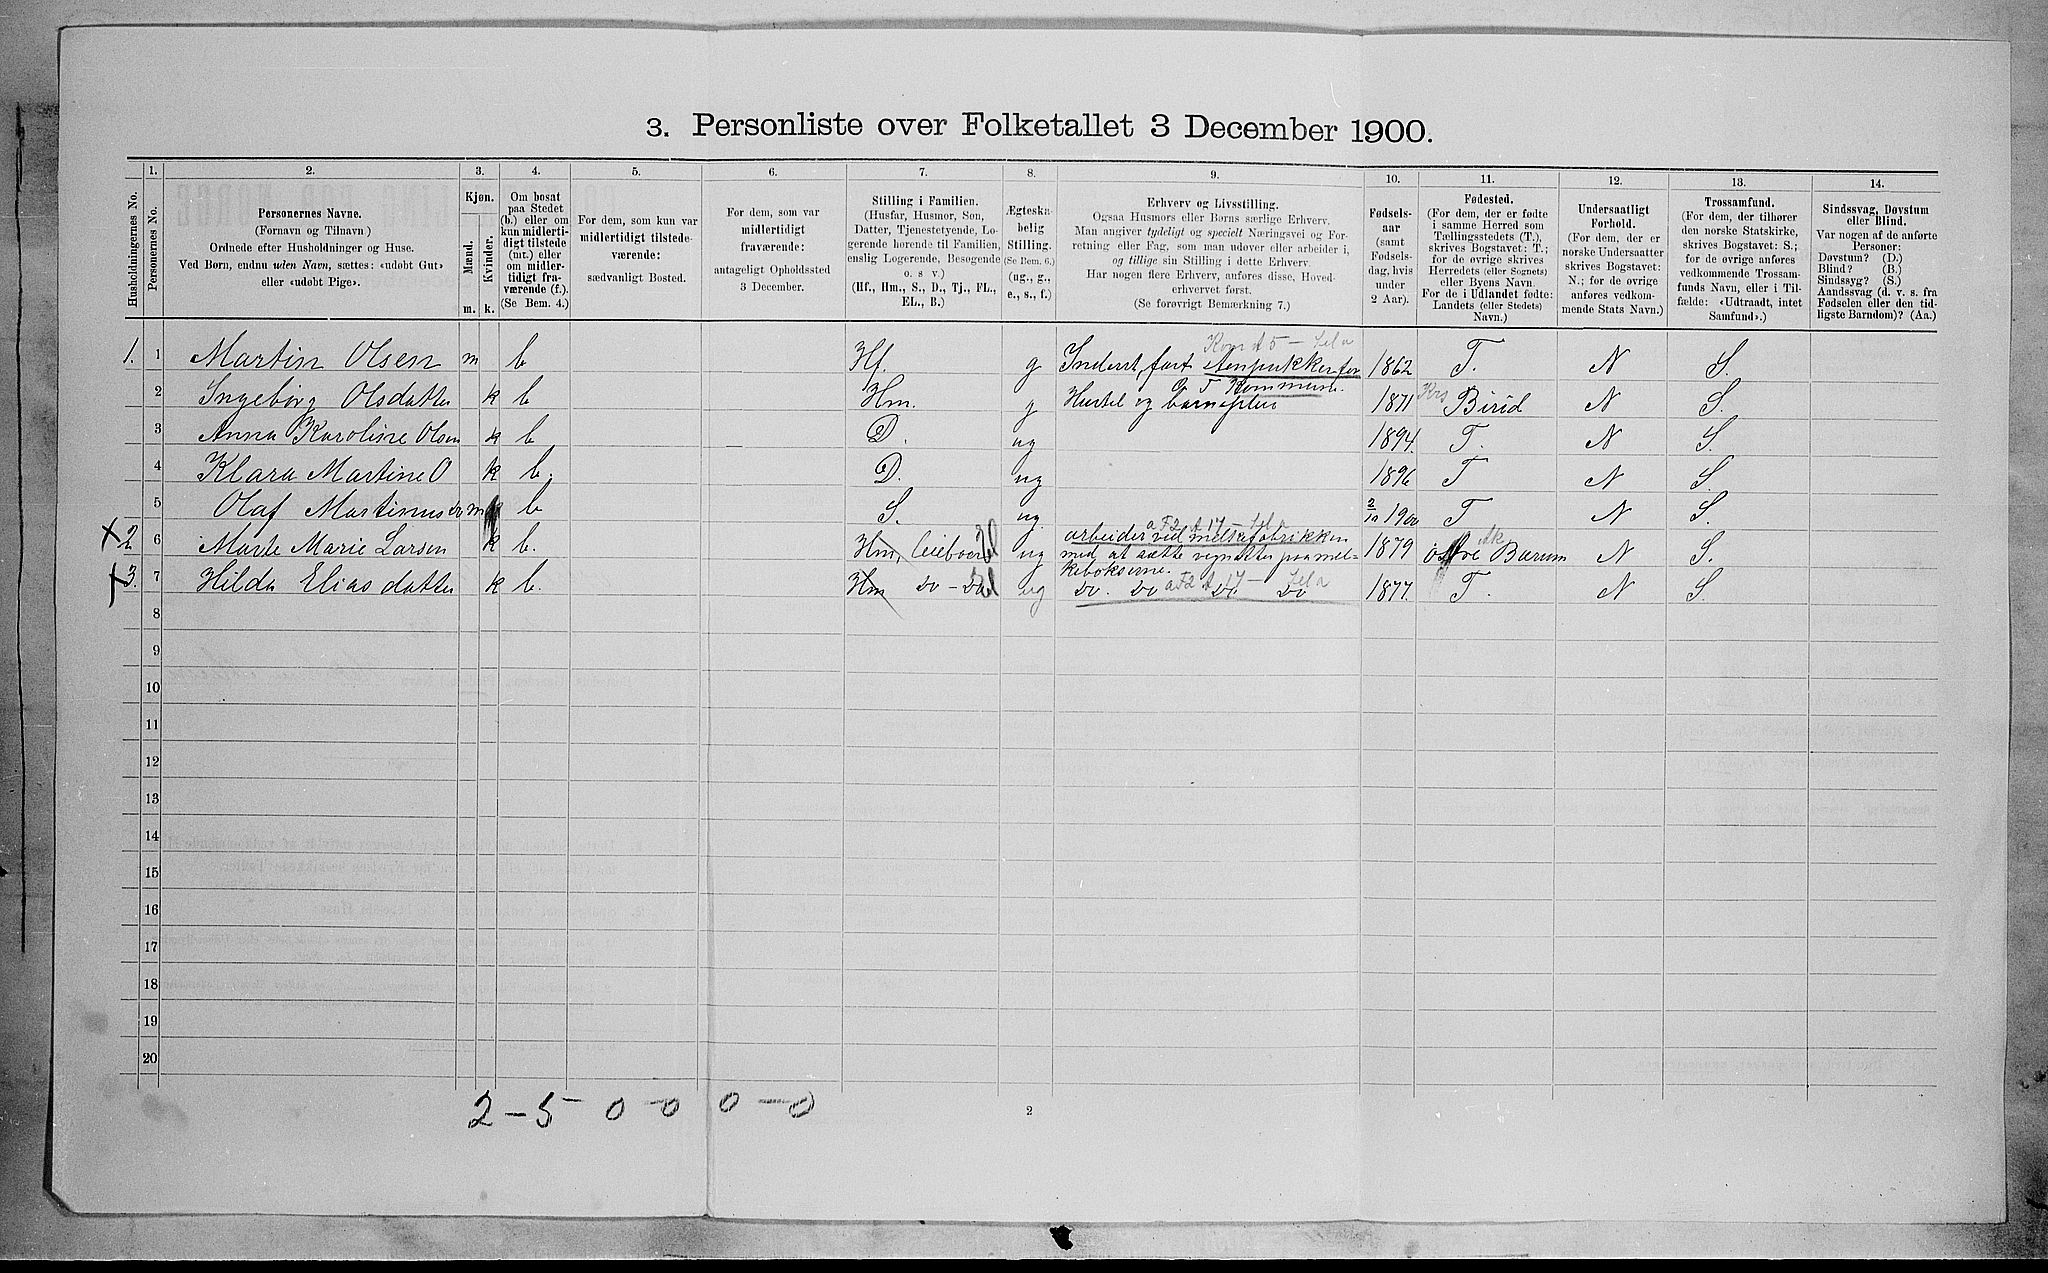 3. Personliste over Folketallet 3 December 1900.
Husholdningernes No.
1.
Personernes No.
2.
Personernes Navne.
(Fornavn og Tilnavn)
Ordnede efter Husholdninger og Huse.
Ved Børn, endnu uden Navn, sættes: «udøbt Gut»
eller «udøbt Pige».
3.
Kjøn.
Mænd.
Kvinder.
m. k.
4.
Om bosat
paa Stedet
(b.) eller om
kun midlerti-
digt tilstede
(mt.) eller
om midler-
tidigt fra-
værende (f.).
(Se Bem. 4.)
5.
For dem, som kun var
midlertidigt tilstede-
værende:
sædvanligt Bosted.
6.
For dem, som var
midlertidigt
fraværende:
antageligt Opholdssted
3 December.
7.
Stilling i Familien.
(Husfar, Husmor, Søn,
Datter, Tjenestetyende, Lo-
gerende hørende til Familien,
enslig Logerende, Besøgende
o. s v.)
(Hf., Hm., S., D., Tj., FL.,
EL., B.)
8.
Ægteska-
belig
Stilling.
(Se Bem. 6.)
(ug., g.,
e., s., f.)
9.
Erhverv og Livsstilling.
Ogsaa Husmors eller Børns særlige Erhverv.
Man angiver tydeligt og specielt Næringsvei og For-
retning eller Fag, som man udøver eller arbeider i,
og tillige sin Stilling i dette Erhverv.
Har nogen flere Erhverv, anføres disse, Hoved-
erhvervet først.
(Se forøvrigt Bemærkning 7.)
10.
Fødsels-
aar
(samt
Fødsels-
dag, hvis
under
2 Aar).
11.
Fødested.
(For dem, der er fødte
i samme Herred som
Tællingsstedets (T.),
skrives Bogstavet: T.;
for de øvrige skrives
Herredets (eller Sognets)
eller Byens Navn.
For de i Udlandet fødte:
Landets (eller Stedets)
Navn.)
12.
Undersaatligt
Forhold.
(For dem, der er
norske Undersaatter
skrives Bogstavet:
N.; for de øvrige
anføres vedkom-
mende Stats Navn.)
13.
Trossamfund.
(For dem, der tilhører
den norske Statskirke,
skrives Bogstavet: S.;
for de øvrige anføres
vedkommende Trossam-
funds Navn, eller i Til-
fælde: «Udtraadt, intet
Samfund».)
14.
Sindssvag, Døvstum
eller Blind.
Var nogen af de anførte
Personer:
Døvstum? (D.)
Blind? (B.)
Sindssyg? (S.)
Aandssvag (d. v. s. fra
Fødselen eller den tid-
ligste Barndom)? (Aa.)
1. 1 Martin Olsen m b Hf. g Inderst, fast Stenpukker for 1862 T. N S.
T Kommune.
2 Ingebørg Olsdatter k b Hm. g Hustel og barnepleie 1871 Krs Birid N S.
3 Anna Karoline Olsen k b D. ug 1894. T. N S.
4 Klara Martine O k b. D. ug 1896 T N S.
5 Olaf Martinus do m b S. ug. 2/10 1900 T N S.
x 2 6 Marte Marie Larsen k b. Hm, leieboer El ug arbeider ved melkefabrikken 1879 Ak østre Bærum N S.
med at sætte vignetter paa mel-
kebokserne.
x 3. 7 Hilda Elias datter k b. Hm do - do El ug do. do do do 1877. T. N S.
8
9
10
11
12
13
14
15
16
17
18
19
20
2 - 5 0 - 0 0 - 0
2